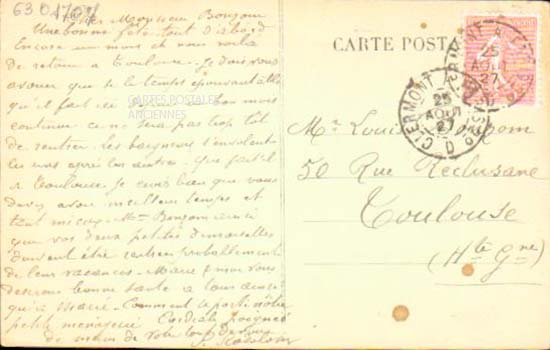 630170
Cher Monsieur Bonzom
Une bonne fête tout d'abord
Encore un mois et vous voilà
de retour à Toulouse. Je dois vous
avouer que le temps épouvantable
qu'il fait ici bon mois
continue ce ne sera pas trop tôt
de rentrer. Les baigneurs s'envolent
les uns après les autres. Que fait-il
à Toulouse. Je crois bien que vous
devez avoir meilleur temps et
tout Mme Bonzom ainsi
que vos deux petites demoiselles
doivent être rentrées probablement
de leur vacances. Marie & moi vous
bonne santé à tous
Marie. Comment se porte notre
petite ménagerie. Cordiale poignée
de main de votre tout dévoué
CARTES POSTALES
ANCIENNES
CARTE POSTALE
CLERMONT
25
AOUT
27
25
AOUT
27
Mr Louis Bonzom
50 Rue Reclusane
Toulouse
(Hte Gne)